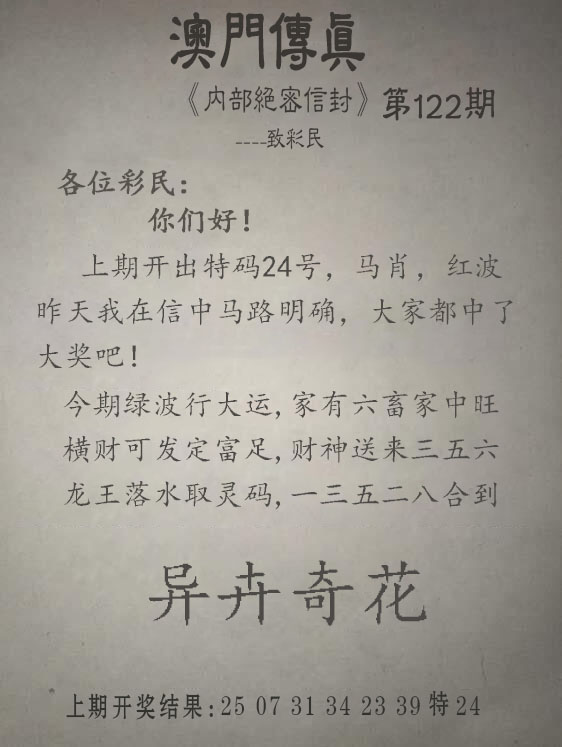 澳門傳真
《内部絕密信封》第122期
----致彩民
各位彩民：
你们好！
上期开出特码24号，马肖，红波
昨天我在信中马路明确，大家都中了
大奖吧！
今期绿波行大运,家有六畜家中旺
横财可发定富足,财神送来三五六
龙王落水取灵码,一三五二八合到
异卉奇花
上期开奖结果:25 07 31 34 23 39 特 24